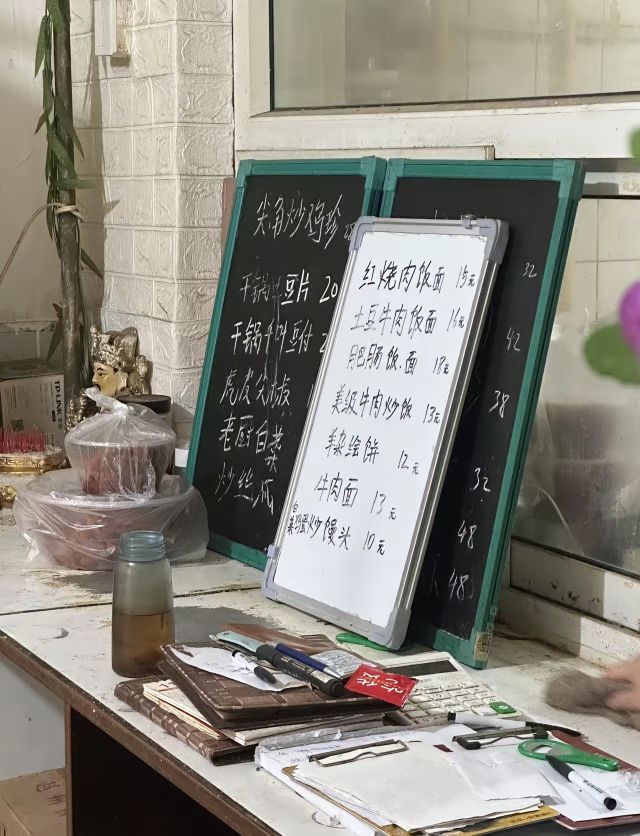 尖角炒鸡珍
干锅土豆片 20
干锅千叶豆付
虎皮尖椒
老厨白菜
炒丝瓜
红烧肉饭面 15元
土豆牛肉饭面 16元
肥肠饭.面 18元
美级牛肉炒饭 13元
羊杂绘饼 12元
牛肉面 13元
炒馒头 10元
32
42
38
32
48
48
TP-LINK